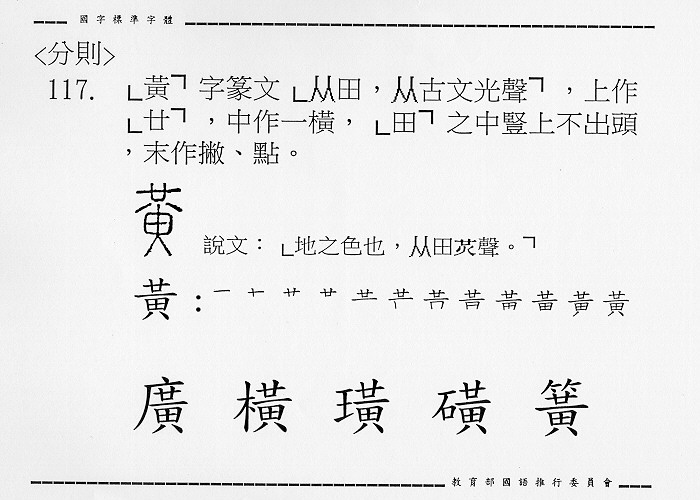 國字標準字體
<分則>
117. ㄴ黃ㄱ字篆文ㄴ从田，从古文光聲ㄱ，上作
ㄴ廿ㄱ，中作一橫，ㄴ田ㄱ之中豎上不出頭
，末作撇、點。
黃 說文：ㄴ地之色也，从田炗聲。ㄱ
黃：
廣 橫 璜 磺 簧
教育部國語推行委員會